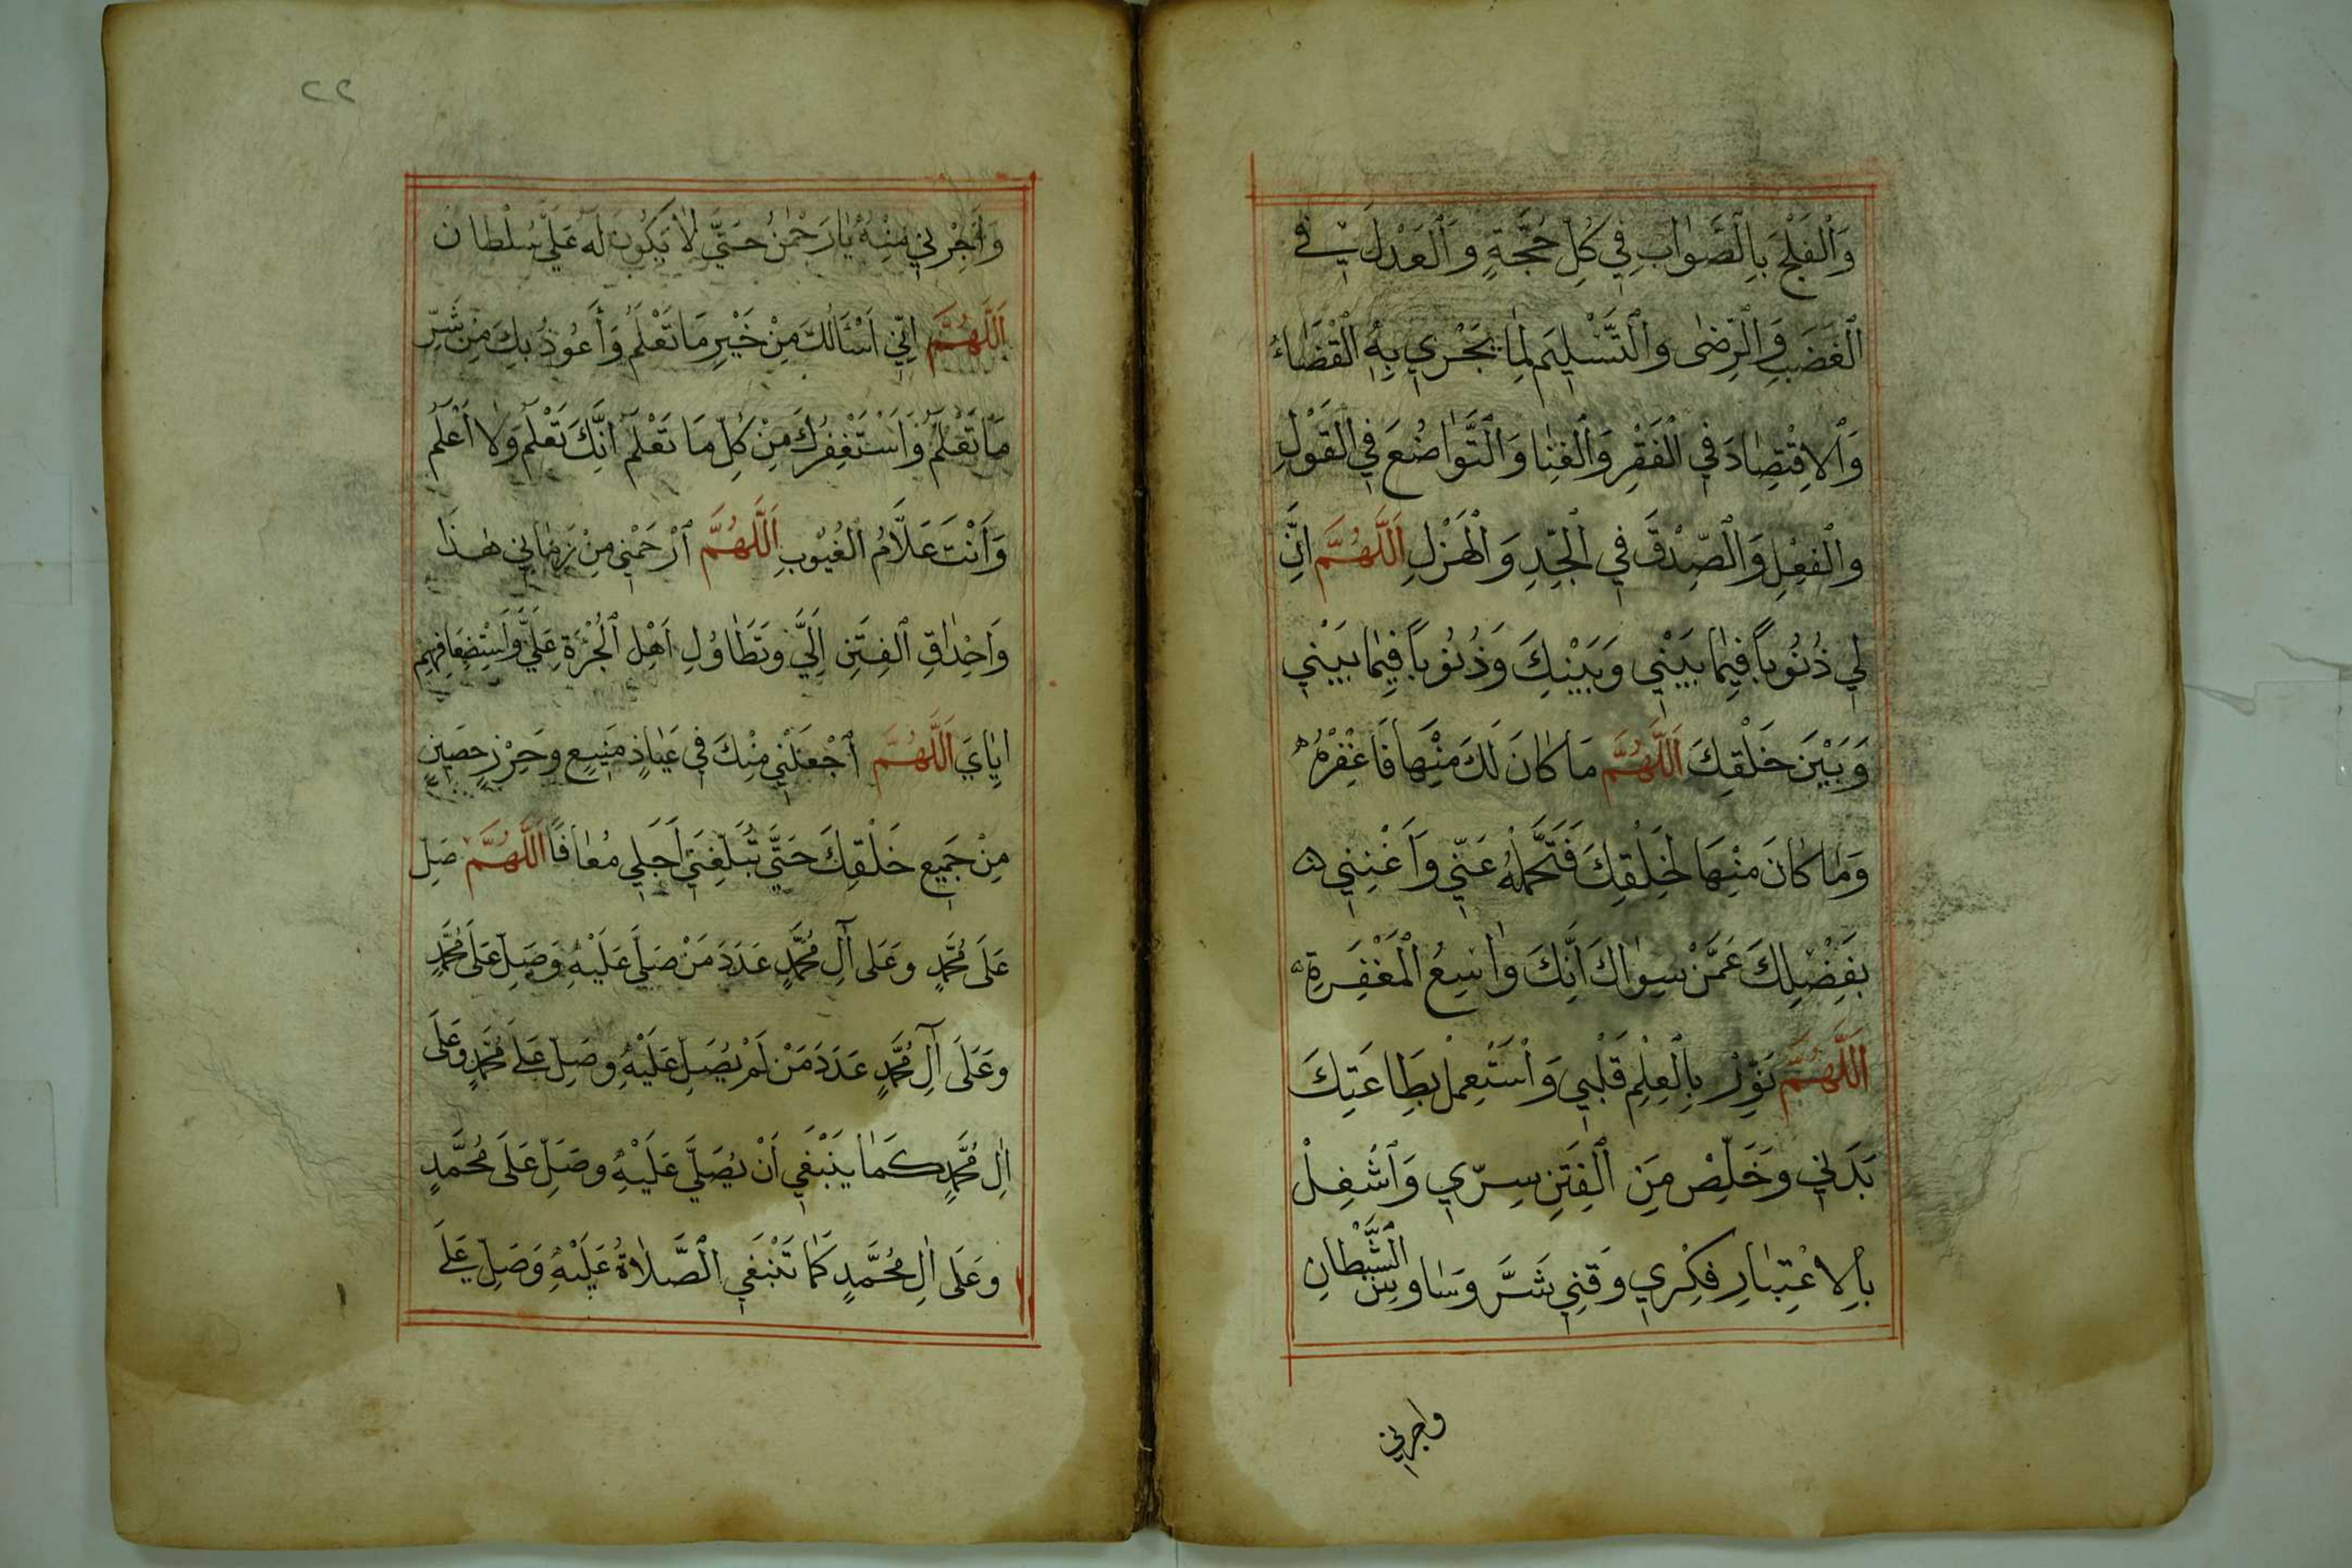 وَالْفَلْجَ بِالصَّوَابِ فِي كُلِّ حُجَّةٍ وَالْعَدْلَ فِي
الْغَضَبِ وَالرِّضَى وَالتَّسْلِيمَ لِمَا يَجْرِي بِهِ الْقَضَاءُ
وَالِاقْتِصَادَ فِي الْفَقْرِ وَالْغِنَا وَالتَّوَاضُعَ فِي الْقَوْلِ
وَالْفِعْلِ وَالصِّدْقَ فِي الْجِدِّ وَالْهَزْلِ اَللَّهُمَّ اِنَّ
لِي ذُنُوبًا فِيمَا بَيْنِي وَبَيْنَكَ وَذُنُوبًا فِيمَا بَيْنِي
وَبَيْنَ خَلْقِكَ اَللَّهُمَّ مَا كَانَ لَكَ مِنْهَا فَاغْفِرْهُ
وَمَا كَانَ مِنْهَا لِخَلْقِكَ فَتَحَمَّلْهُ عَنِّي وَأَغْنِنِي
بِفَضْلِكَ عَمَّنْ سِوَاكَ اِنَّكَ وَاسِعُ الْمَغْفِرَةِ
اَللَّهُمَّ نَوِّرْ بِالْعِلْمِ قَلْبِي وَاسْتَعْمِلْ بِطَاعَتِكَ
بَدَنِي وَخَلِّصْ مِنَ الْفِتَنِ سِرِّي وَاشْغِلْ
بِالِاعْتِبَارِ فِكْرِي وَقِنِي شَرَّ وَسَاوِسِ الشَّيْطَانِ
واجرني
٢٢
وَأَجِرْنِي مِنْهُ يَا رَحْمٰنُ حَتَّى لَا يَكُونَ لَهُ عَلَيَّ سُلْطَان
اَللَّهُمَّ اِنِّي اَسْئَالُكَ مِنْ خَيْرِ مَا تَعْلَمُ وَأَعُوذُ بِكَ مِنْ شَرِّ
مَا تَعْلَمُ وَاَسْتَغْفِرُكَ مِنْ كُلِّ مَا تَعْلَمُ اِنَّكَ تَعْلَمُ وَلَا اَعْلَمُ
وَاَنْتَ عَلَّامُ الْغُيُوبِ اَللَّهُمَّ ارْحَمْنِي مِنْ زَمَانِي هٰذَا
وَاَحْدَاقِ الْفِتَنِ اِلَيَّ وَتَطَاوُلِ اَهْلِ الْجُرْءَةِ عَلَيَّ وَاسْتِضْعَافِهِمْ
اِيَّايَ اَللَّهُمَّ اجْعَلْنِي مِنْكَ فِي عَيَاذٍ مَنِيعٍ وَحِرْزٍ حَصِينٍ
مِنْ جَمِيعِ خَلْقِكَ حَتَّى تُبَلِّغَنِي اَجَلِي مُعَافًا اَللَّهُمَّ صَلِّ
عَلَى مُحَمَّدٍ وَعَلَى آلِ مُحَمَّدٍ عَدَدَ مَنْ صَلَّى عَلَيْهِ وَصَلِّ عَلَى مُحَمَّدٍ
وَعَلَى آلِ مُحَمَّدٍ عَدَدَ مَنْ لَمْ يُصَلِّ عَلَيْهِ وَصَلِّ عَلَى مُحَمَّدٍ وَعَلَى
اٰلِ مُحَمَّدٍ كَمَا يَنْبَغِي اَنْ يُصَلَّى عَلَيْهِ وَصَلِّ عَلَى مُحَمَّدٍ
وَعَلَى اٰلِ مُحَمَّدٍ كَمَا تَنْبَغِي الصَّلَاةُ عَلَيْهِ وَصَلِّ عَلَى